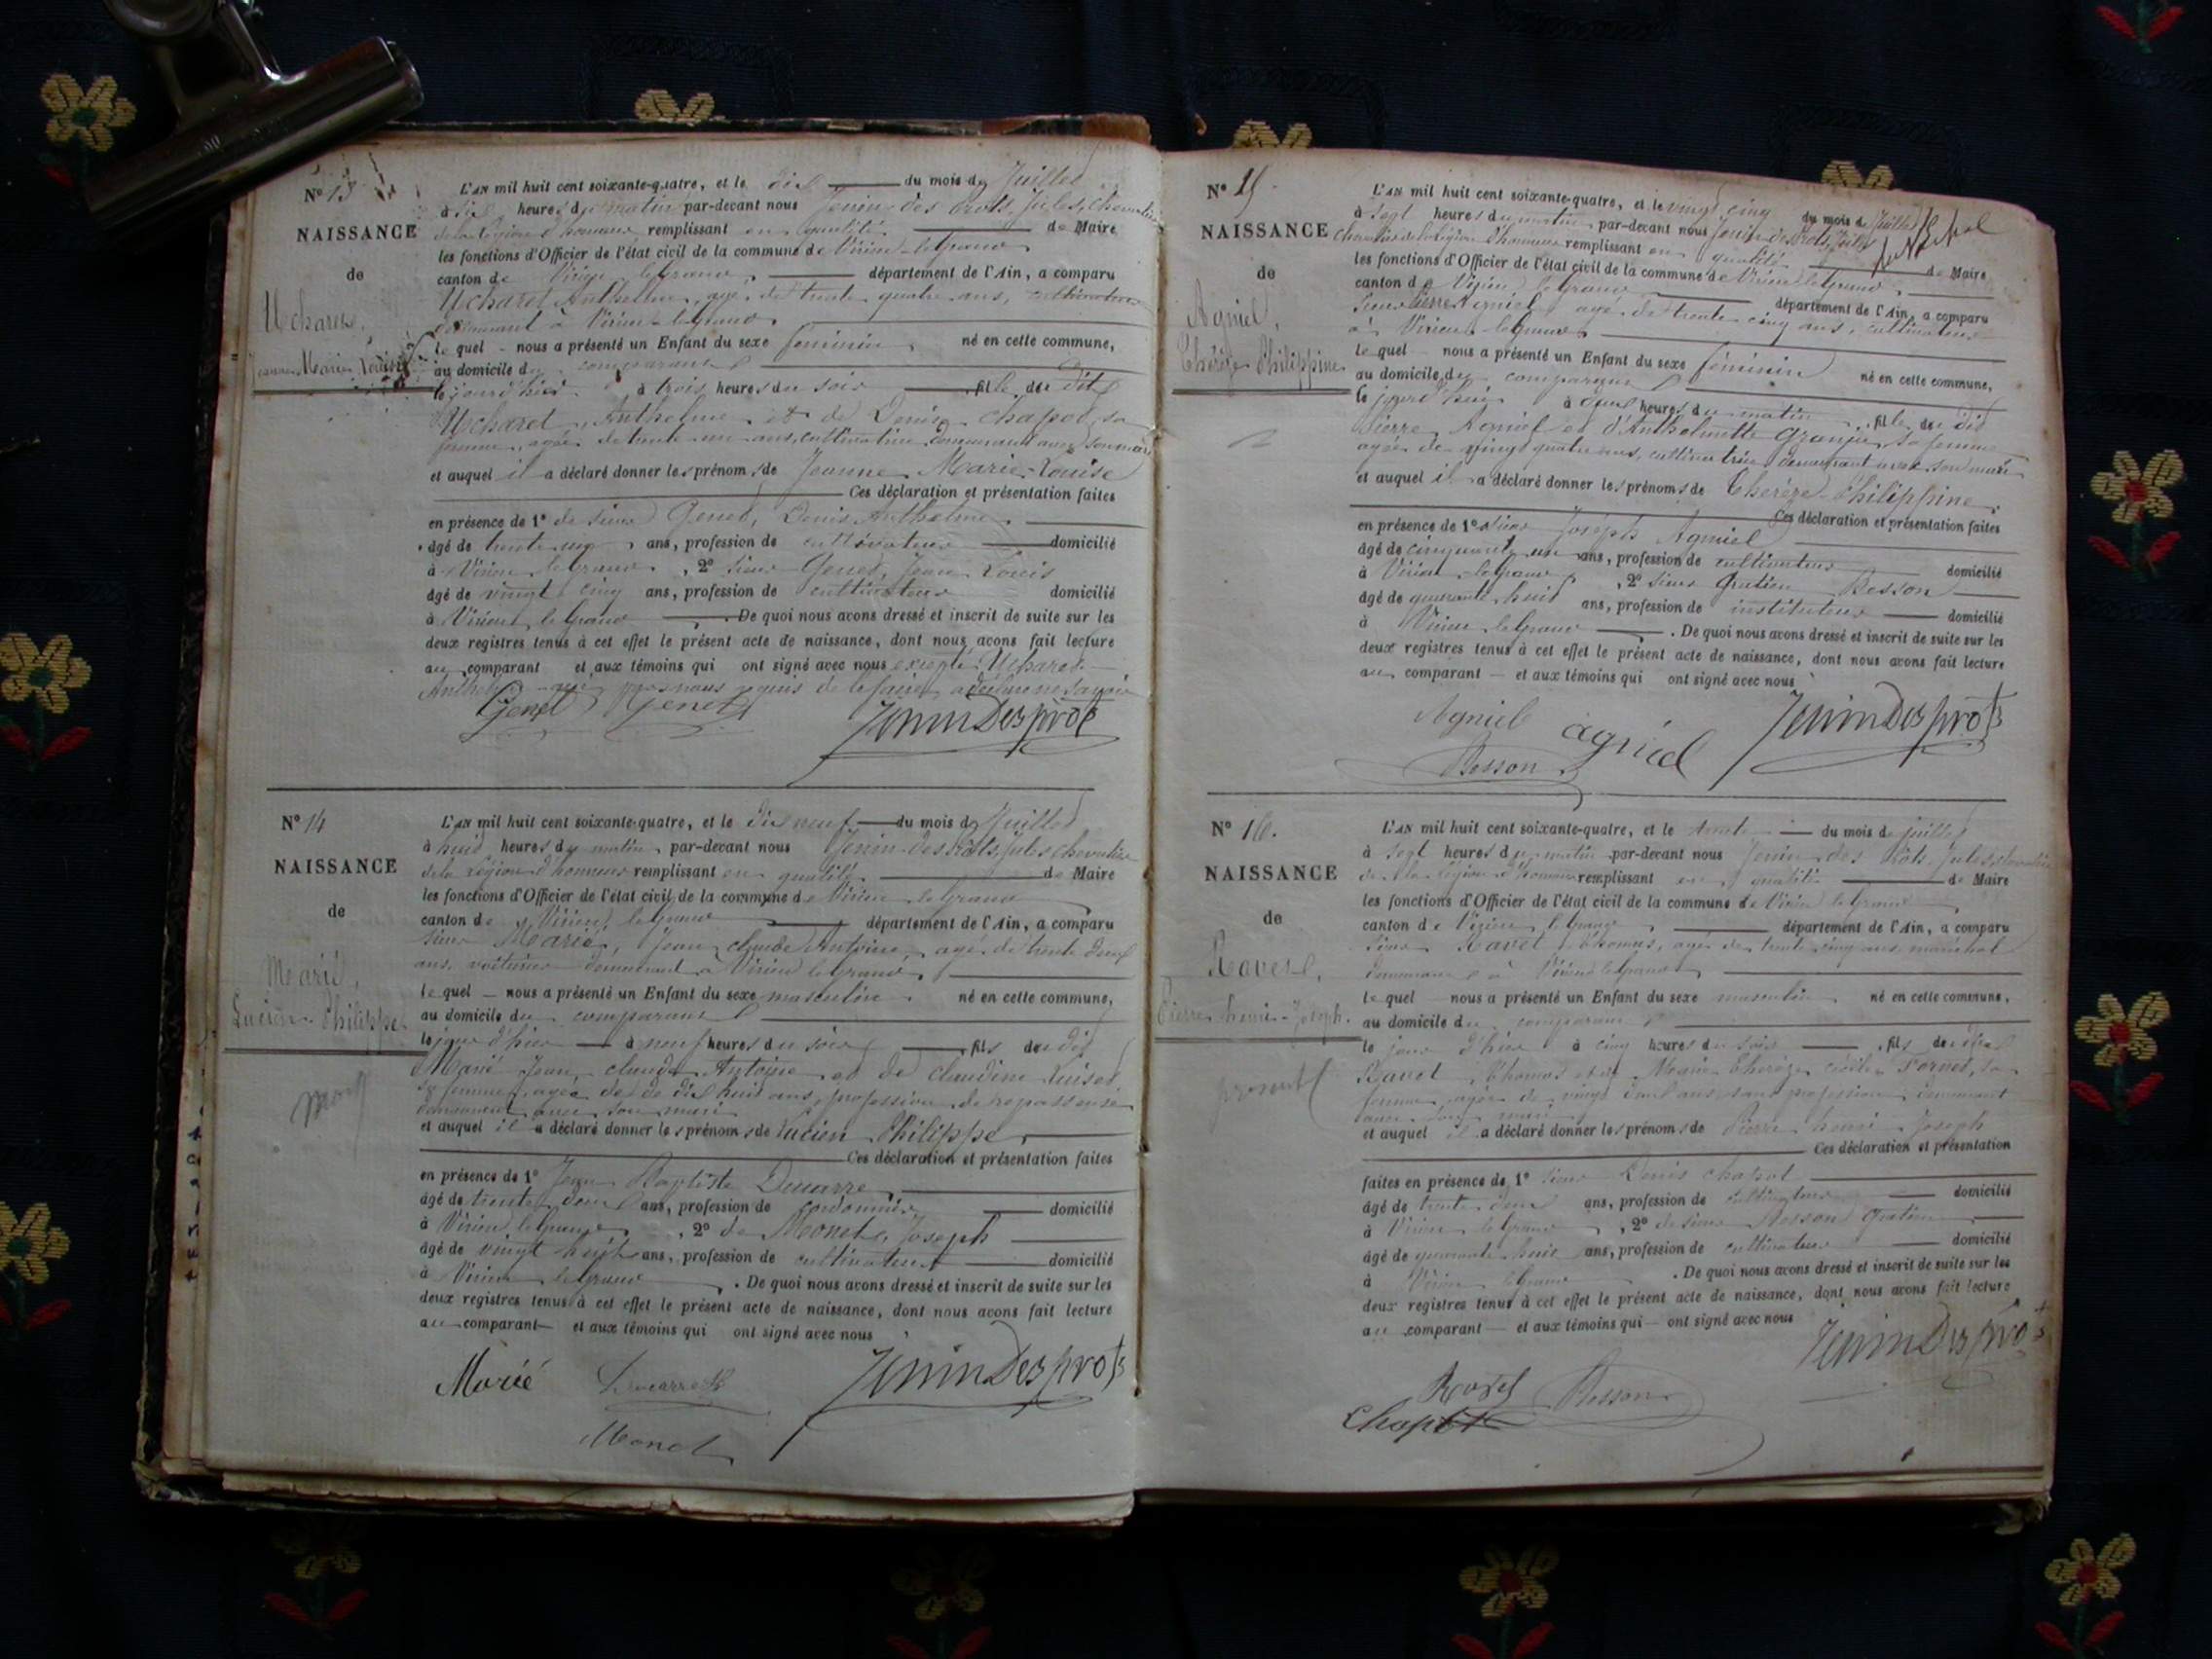 N° 13
NAISSANCE
de
Ucharet,
Jeanne Marie Louise
L'AN mil huit cent soixante-quatre, et le dix du mois de Juillet
à six heures du matin par-devant nous Jenin des Prots, Jules, chevalier
de la Légion d'honneur remplissant en qualité de Maire
les fonctions d'Officier de l'état civil de la commune de Virieu-le-Grand
canton de Virieu-le-Grand, département de l'Ain, a comparu
Ucharet Anthelme, agé de trente quatre ans, cultivateur
demeurant à Virieu-le-grand
lequel nous a présenté un Enfant du sexe féminin, né en cette commune,
au domicile du comparant
le jour d'hier à trois heures du soir fille du dit
Ucharet, Anthelme et de Denise Chapot, sa
femme, agée de trente un ans, cultivatrice demeurant avec son mari
et auquel il a déclaré donner les prénoms de Jeanne Marie-Louise
Ces déclaration et présentation faites
en présence de 1° de sieur Genet, Denis Anthelme
âgé de trente ans, profession de cultivateur domicilié
à Virieu le Grand, 2° sieur Genet, Jean Louis
âgé de vingt cinq ans, profession de cultivateur domicilié
à Virieu le Grand. De quoi nous avons dressé et inscrit de suite sur les
deux registres tenus à cet effet le présent acte de naissance, dont nous avons fait lecture
au comparant et aux témoins qui ont signé avec nous excepté Ucharet
Anthelme qui par nous requis de le faire, a déclaré ne savoir
Genet Genet JeninDesprots
N° 14
NAISSANCE
de
Marié,
Lucien Philippe
mort
L'AN mil huit cent soixante-quatre, et le dix neuf du mois de Juillet
à huit heures du matin, par-devant nous Jenin des Prots, Jules chevalier
de la Légion d'honneur remplissant en qualité de Maire
les fonctions d'Officier de l'état civil de la commune de Virieu le Grand
canton de Virieu le Grand département de l'Ain, a comparu
sieur Marié, Jean claude Antoine, agé de trente deux
ans, voiturier demeurant à Virieu le grand,
lequel nous a présenté un Enfant du sexe masculin. né en cette commune,
au domicile du comparant
le jour d'hier à neuf heures du soir, fils du dit
Marié Jean claude Antoine et de claudine
sa femme, agée de dix huit ans, profession de repasseuse
demeurant avec son mari
et auquel il a déclaré donner les prénoms de Lucien Philippe,
Ces déclaration et présentation faites
en présence de 1° Jean Baptiste Ducarre,
âgé de trente deux ans, profession de cordonnier domicilié
à Virieu le Grand, 2° de Monet, Joseph
âgé de vingt huit ans, profession de cultivateur domicilié
à Virieu le Grand. De quoi nous avons dressé et inscrit de suite sur les
deux registres tenus à cet effet le présent acte de naissance, dont nous avons fait lecture
au comparant et aux témoins qui ont signé avec nous
Marié Ducarre JeninDesprots
Monet
N° 15.
NAISSANCE
de
Agniel,
Thérèze Philippine
L'AN mil huit cent soixante-quatre, et le vingt cinq du mois de Juillet
à sept heures du matin par-devant nous Jenin des Prots, Jules
Chevalier de la Légion d'honneur remplissant en qualité de Maire
les fonctions d'Officier de l'état civil de la commune de Virieu le Grand
canton de Virieu le Grand département de l'Ain, a comparu
sieur Pierre Agniel agé de trente cinq ans, cultivateur
à Virieu le Grand
lequel nous a présenté un Enfant du sexe féminin né en cette commune,
au domicile du comparant
le jourd'hui à deux heures du matin, fille du dit
Pierre Agniel et d'Anthelmette Granjer, sa femme
agée de vingt quatre ans, cultivatrice demeurant avec son mari
et auquel il a déclaré donner les prénoms de Thérèze Philippine,
Ces déclaration et présentation faites
en présence de 1° sieur Joseph Agniel
âgé de cinquante un ans, profession de cultivateur domicilié
à Virieu le Grand, 2° sieur Gratien Besson
âgé de quarante huit ans, profession de instituteur domicilié
à Virieu le Grand. De quoi nous avons dressé et inscrit de suite sur les
deux registres tenus à cet effet le présent acte de naissance, dont nous avons fait lecture
au comparant et aux témoins qui ont signé avec nous
Agniel agniel JeninDesprots
Besson
N° 16.
NAISSANCE
de
Ravet,
Pierre henri-Joseph.
L'AN mil huit cent soixante-quatre, et le trente du mois de juillet
à sept heures du matin par-devant nous Jenin des Prots, Jules chevalier
de la légion d'honneur remplissant en qualité de Maire
les fonctions d'Officier de l'état civil de la commune de Virieu le Grand
canton de Virieu le Grand, département de l'Ain, a comparu
sieur Ravet Thomas, agé de trente cinq ans, maréchal
demeurant à Virieu le Grand
lequel nous a présenté un Enfant du sexe masculin né en cette commune,
au domicile du comparant
le jour d'hier à cinq heures du soir, fils du dit
Ravet, Thomas et de Marie Thérèze cécile Fornet, sa
femme agée de vingt deux ans, sans profession demeurant
avec son mari
et auquel il a déclaré donner les prénoms de Pierre henri Joseph
Ces déclaration et présentation
faites en présence de 1° sieur Denis chapot
âgé de trente deux ans, profession de cultivateur domicilié
à Virieu le Grand, 2° de sieur Besson Gratien
âgé de quarante huit ans, profession de cultivateur domicilié
à Virieu le Grand. De quoi nous avons dressé et inscrit de suite sur les
deux registres tenus à cet effet le présent acte de naissance, dont nous avons fait lecture
au comparant et aux témoins qui ont signé avec nous
JeninDesprots
Ravet Besson
Chapot